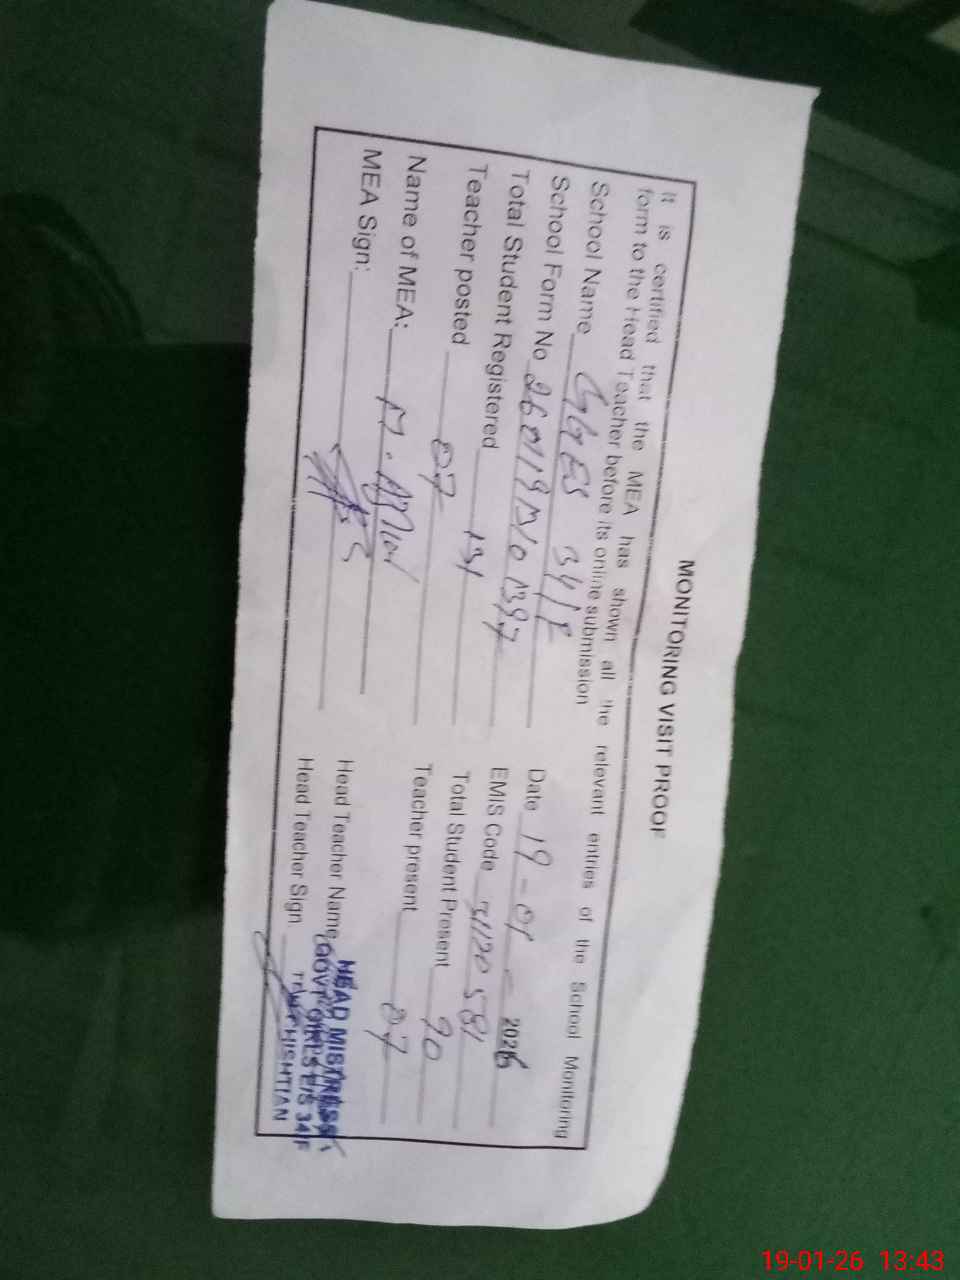 MONITORING VISIT PROOF
It is certified that the MEA has shown all the relevant entries of the School Monitoring
form to the Head Teacher before its online submission
School Name GGES 34/F
Date 19-01-2026
School Form No
EMIS Code 31120581
Total Student Registered 131
Total Student Present 90
Teacher posted 07
Teacher present 07
Name of MEA: M.
Head Teacher Name
MEA Sign:
Head Teacher Sign
HEAD MISTRESS
GOVT GIRLS E/S 34/F
HISHTIAN
19-01-26 13:43